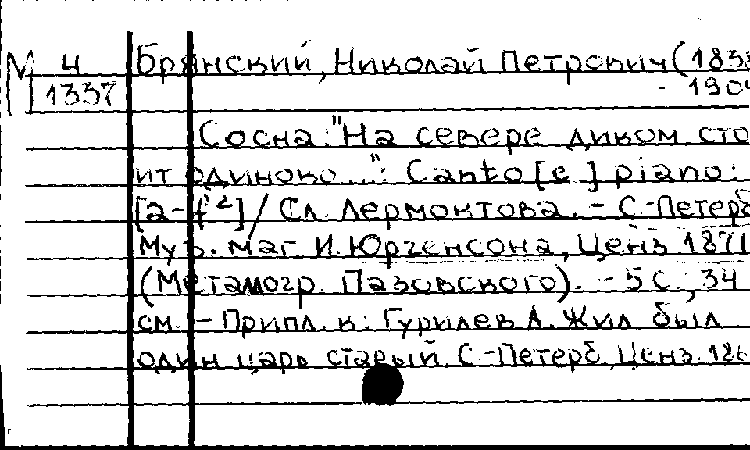 М 4 Брянский, Николай Петрович (183
1337 - 190
Сосна: "На севере диком сто
ит одиноко...": Canto [e] piano:
[a-f²] / Сл. Лермонтова. - С-Петерб
Муз. маг. И. Юргенсона, Ценз 1871
(Метамогр. Пазовского). - 5 с., 34
см. - Припл. к: Гурилев А. Жил был
один царь старый. С-Петерб, Ценз.